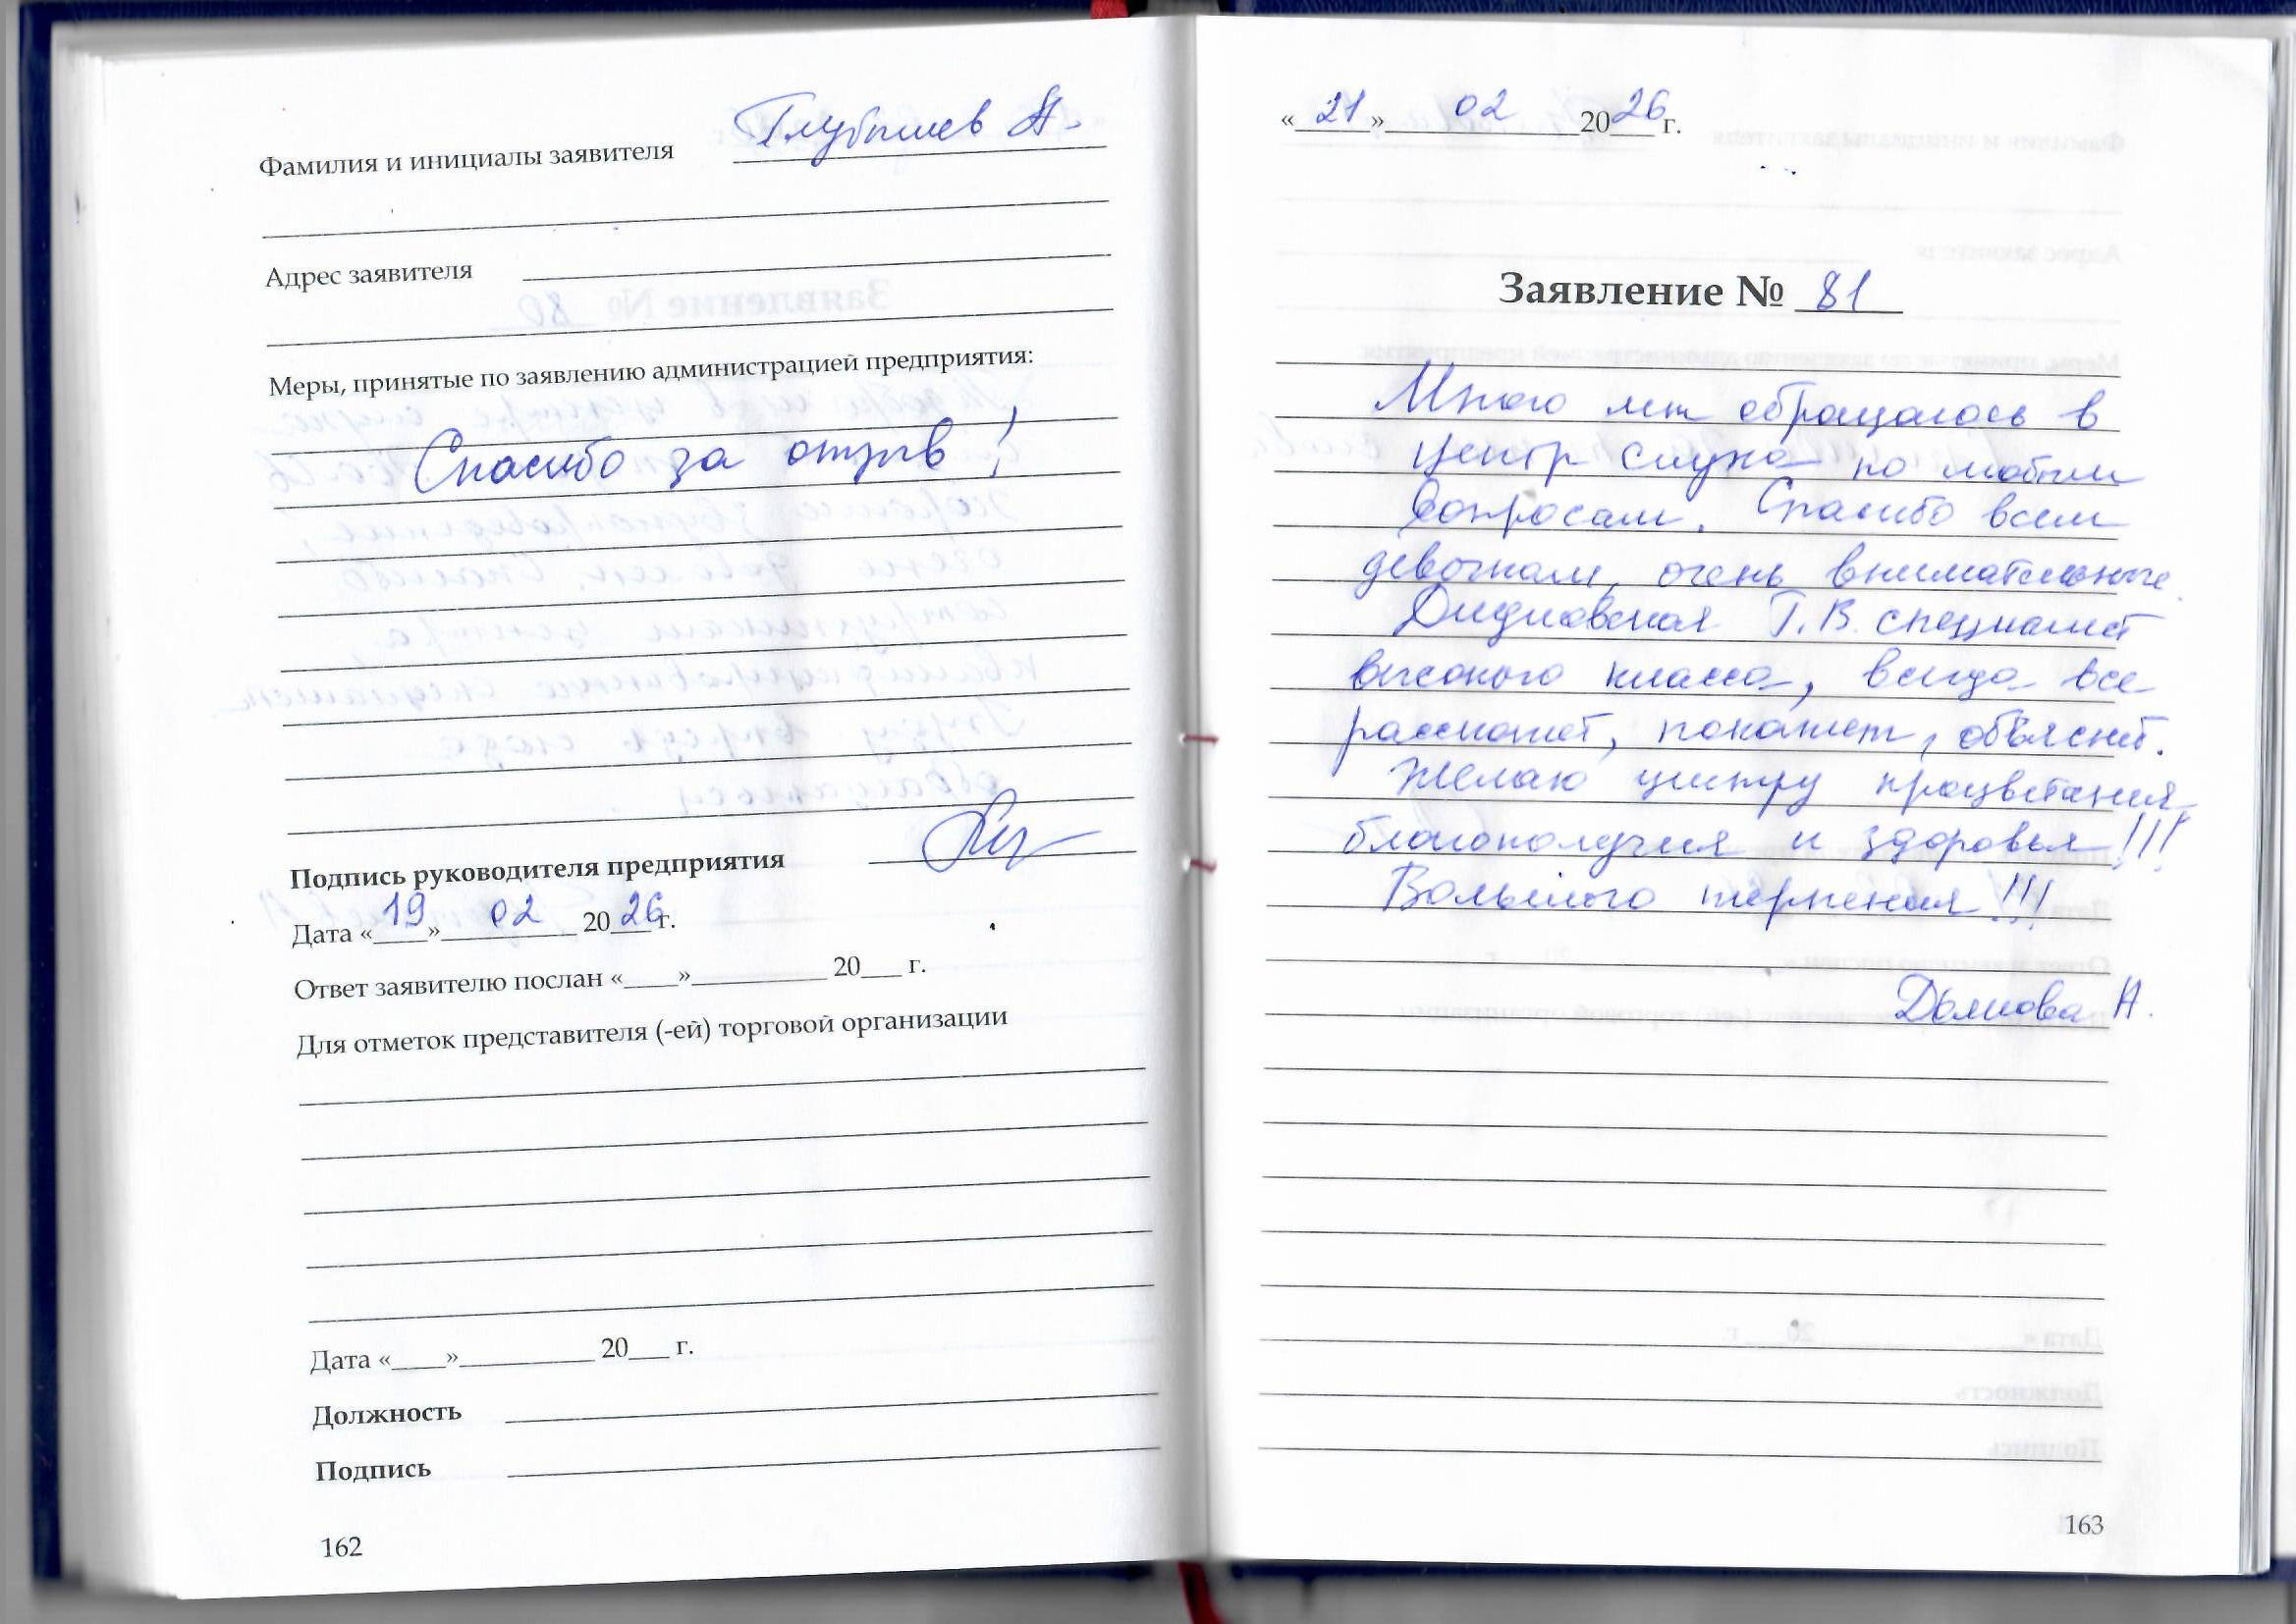 Фамилия и инициалы заявителя Глубышев А.
Адрес заявителя
Меры, принятые по заявлению администрацией предприятия:
Спасибо за отзыв!
Подпись руководителя предприятия
Дата «19» 02 2026г.
Ответ заявителю послан «____»__________ 20___ г.
Для отметок представителя (-ей) торговой организации
Дата «____»__________ 20___ г.
Должность
Подпись
162
«21» 02 2026 г.
Заявление № 81
Много лет обращаюсь в
центр слуха по любым
вопросам. Спасибо всем
девочкам, очень внимательные.
Т.В. специалист
высокого класса, всегда все
расскажет, покажет, объяснит.
Желаю центру процветания
благополучия и здоровья!!!
Большого терпения!!!
А.
163